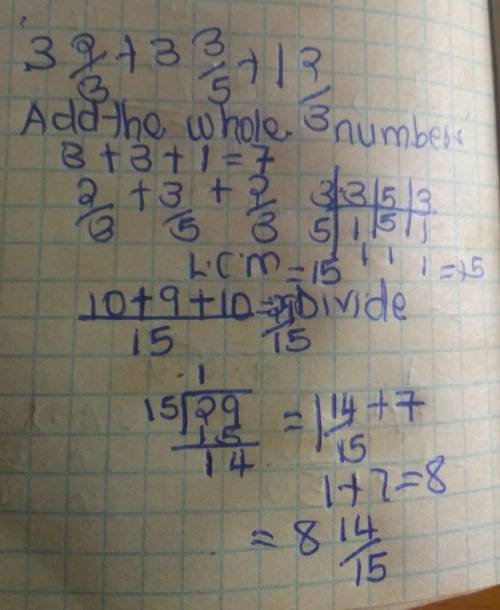 3 2/3 + 3 3/5 + 1 2/3
Add the whole numbers
3 + 3 + 1 = 7
2/3 + 3/5 + 2/3
3 | 3 | 5 | 3
5 | 1 | 5 | 1
1 1 1 = 15
L.C.M = 15
10 + 9 + 10 / 15 = 29/15 Divide
1
15 29 = 1 14/15 + 7
15
14
1 + 7 = 8
= 8 14/15